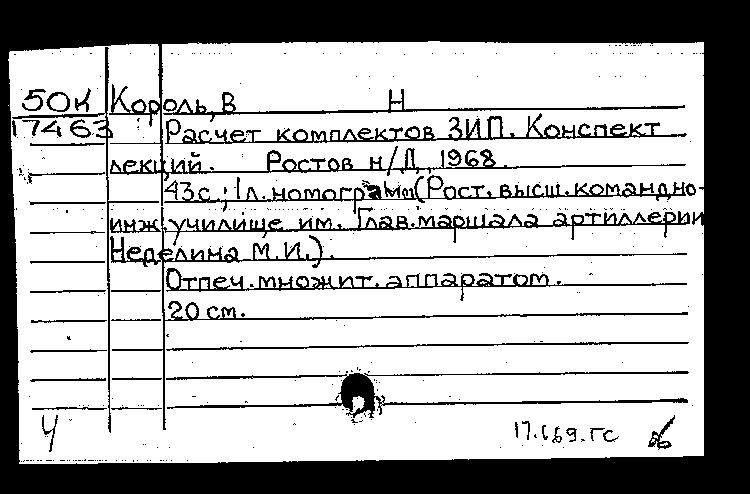 50К Король, В Н
17463 Расчет комплектов ЗИП. Конспект
лекций. Ростов н/Д, 1968.
43с.; 1л. номограмм (Рост. высш. командно-
инж. училище им. Глав. маршала артиллерии
Неделина М.И.).
Отпеч. множит. аппаратом.
20 см.
Ч 17.I.69. ГС